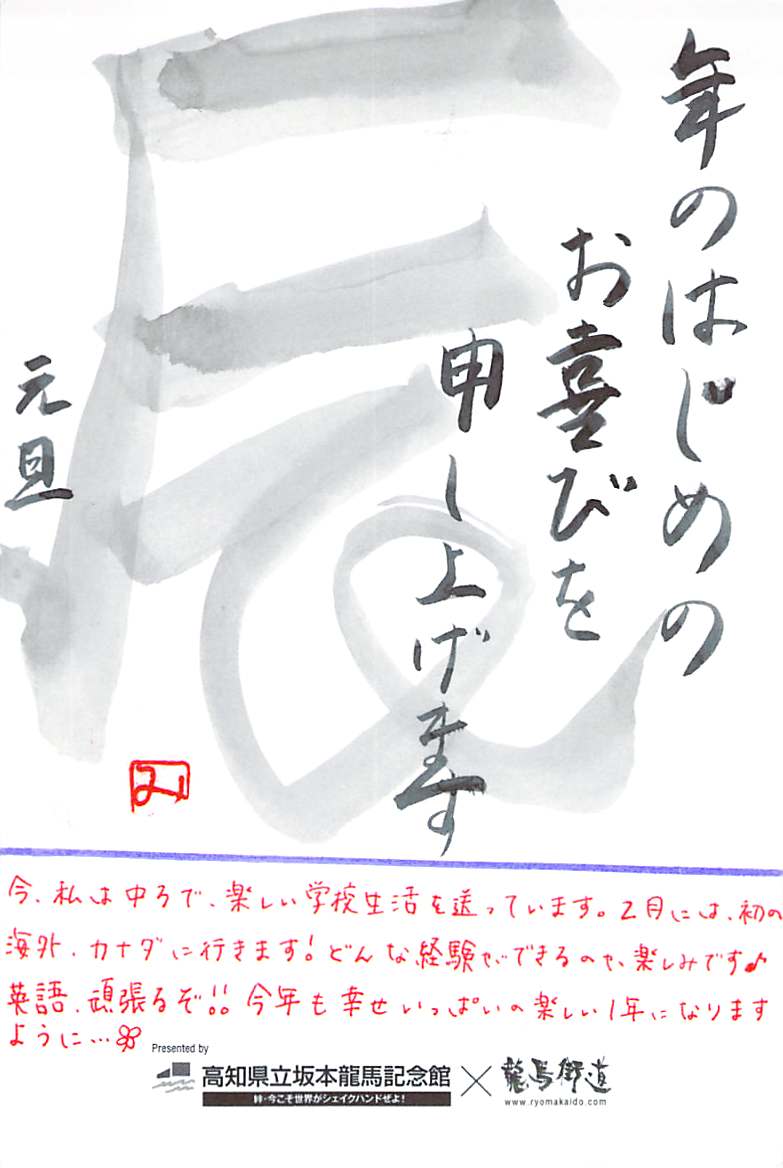 年のはじめの
お喜びを
申し上げます
元旦
辰
今、私は中3で、楽しい学校生活を送っています。2月には、初の
海外、カナダに行きます!どんな経験ができるのか、楽しみです♪
英語、頑張るぞ!!今年も幸せいっぱいの楽しい1年になります
ように…
Presented by
高知県立坂本龍馬記念館 × 龍馬街道
絆・今こそ世界がシェイクハンドぜよ!
www.ryomakaido.com